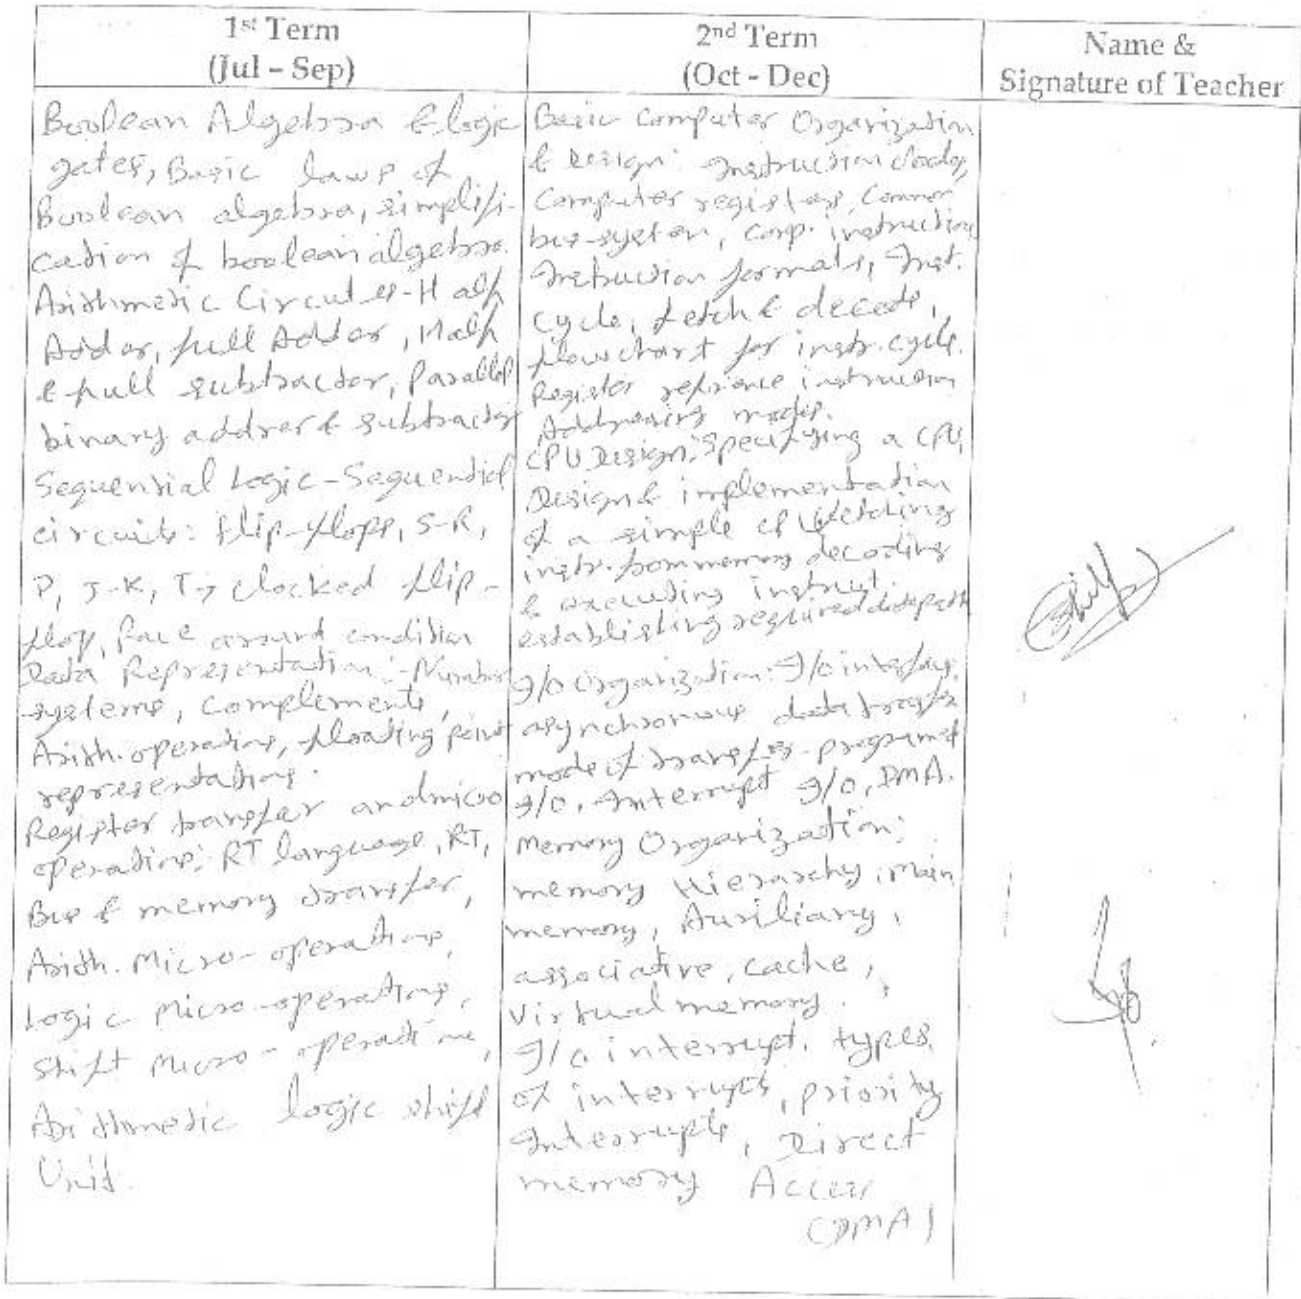 1st Term
(Jul – Sep)
Boolean Algebra & logic
gates, Basic laws of
Boolean algebra, simplifi-
cation of boolean algebra.
Arithmetic Circuits - Half
Adder, full Adder, Half
& full subtractor, Parallel
binary adder & subtractor
Sequential Logic - Sequential
circuits: flip-flops, S-R,
D, J-K, T, clocked flip-
flop, Race around condition
Data Representation:- Number
systems, complements,
Arith. operations, floating point
representations.
Register transfer and micro
operations: RT language, RT,
Bus & memory transfer,
Arith. Micro-operations,
Logic Micro-operations,
Shift Micro-operations,
Arithmetic logic shift
Unit.
2nd Term
(Oct - Dec)
Basic Computer Organization
& Design: Instruction codes,
Computer registers, Common
bus-system, comp. instruction,
Instruction formats, Inst.
cycle, fetch & decode,
flowchart for instr. cycle.
Register refrience instruction
Addressing modes.
CPU Design, Specifying a CPU,
Design & implementation
of a simple CPU fetching
instr. from memory decoding
& executing instruct.
establishing required datapath
I/O Organization: I/O interface,
asynchronous data transfer
mode of transfer - programed
I/O, Interrupt I/O, DMA.
Memory Organization:
memory Hierarchy, Main
memory, Auxiliary,
associative, cache,
Virtual memory.
I/O interrupt, types
of interrupts, priority
Interrupts, Direct
memory Access
(DMA)
Name &
Signature of Teacher